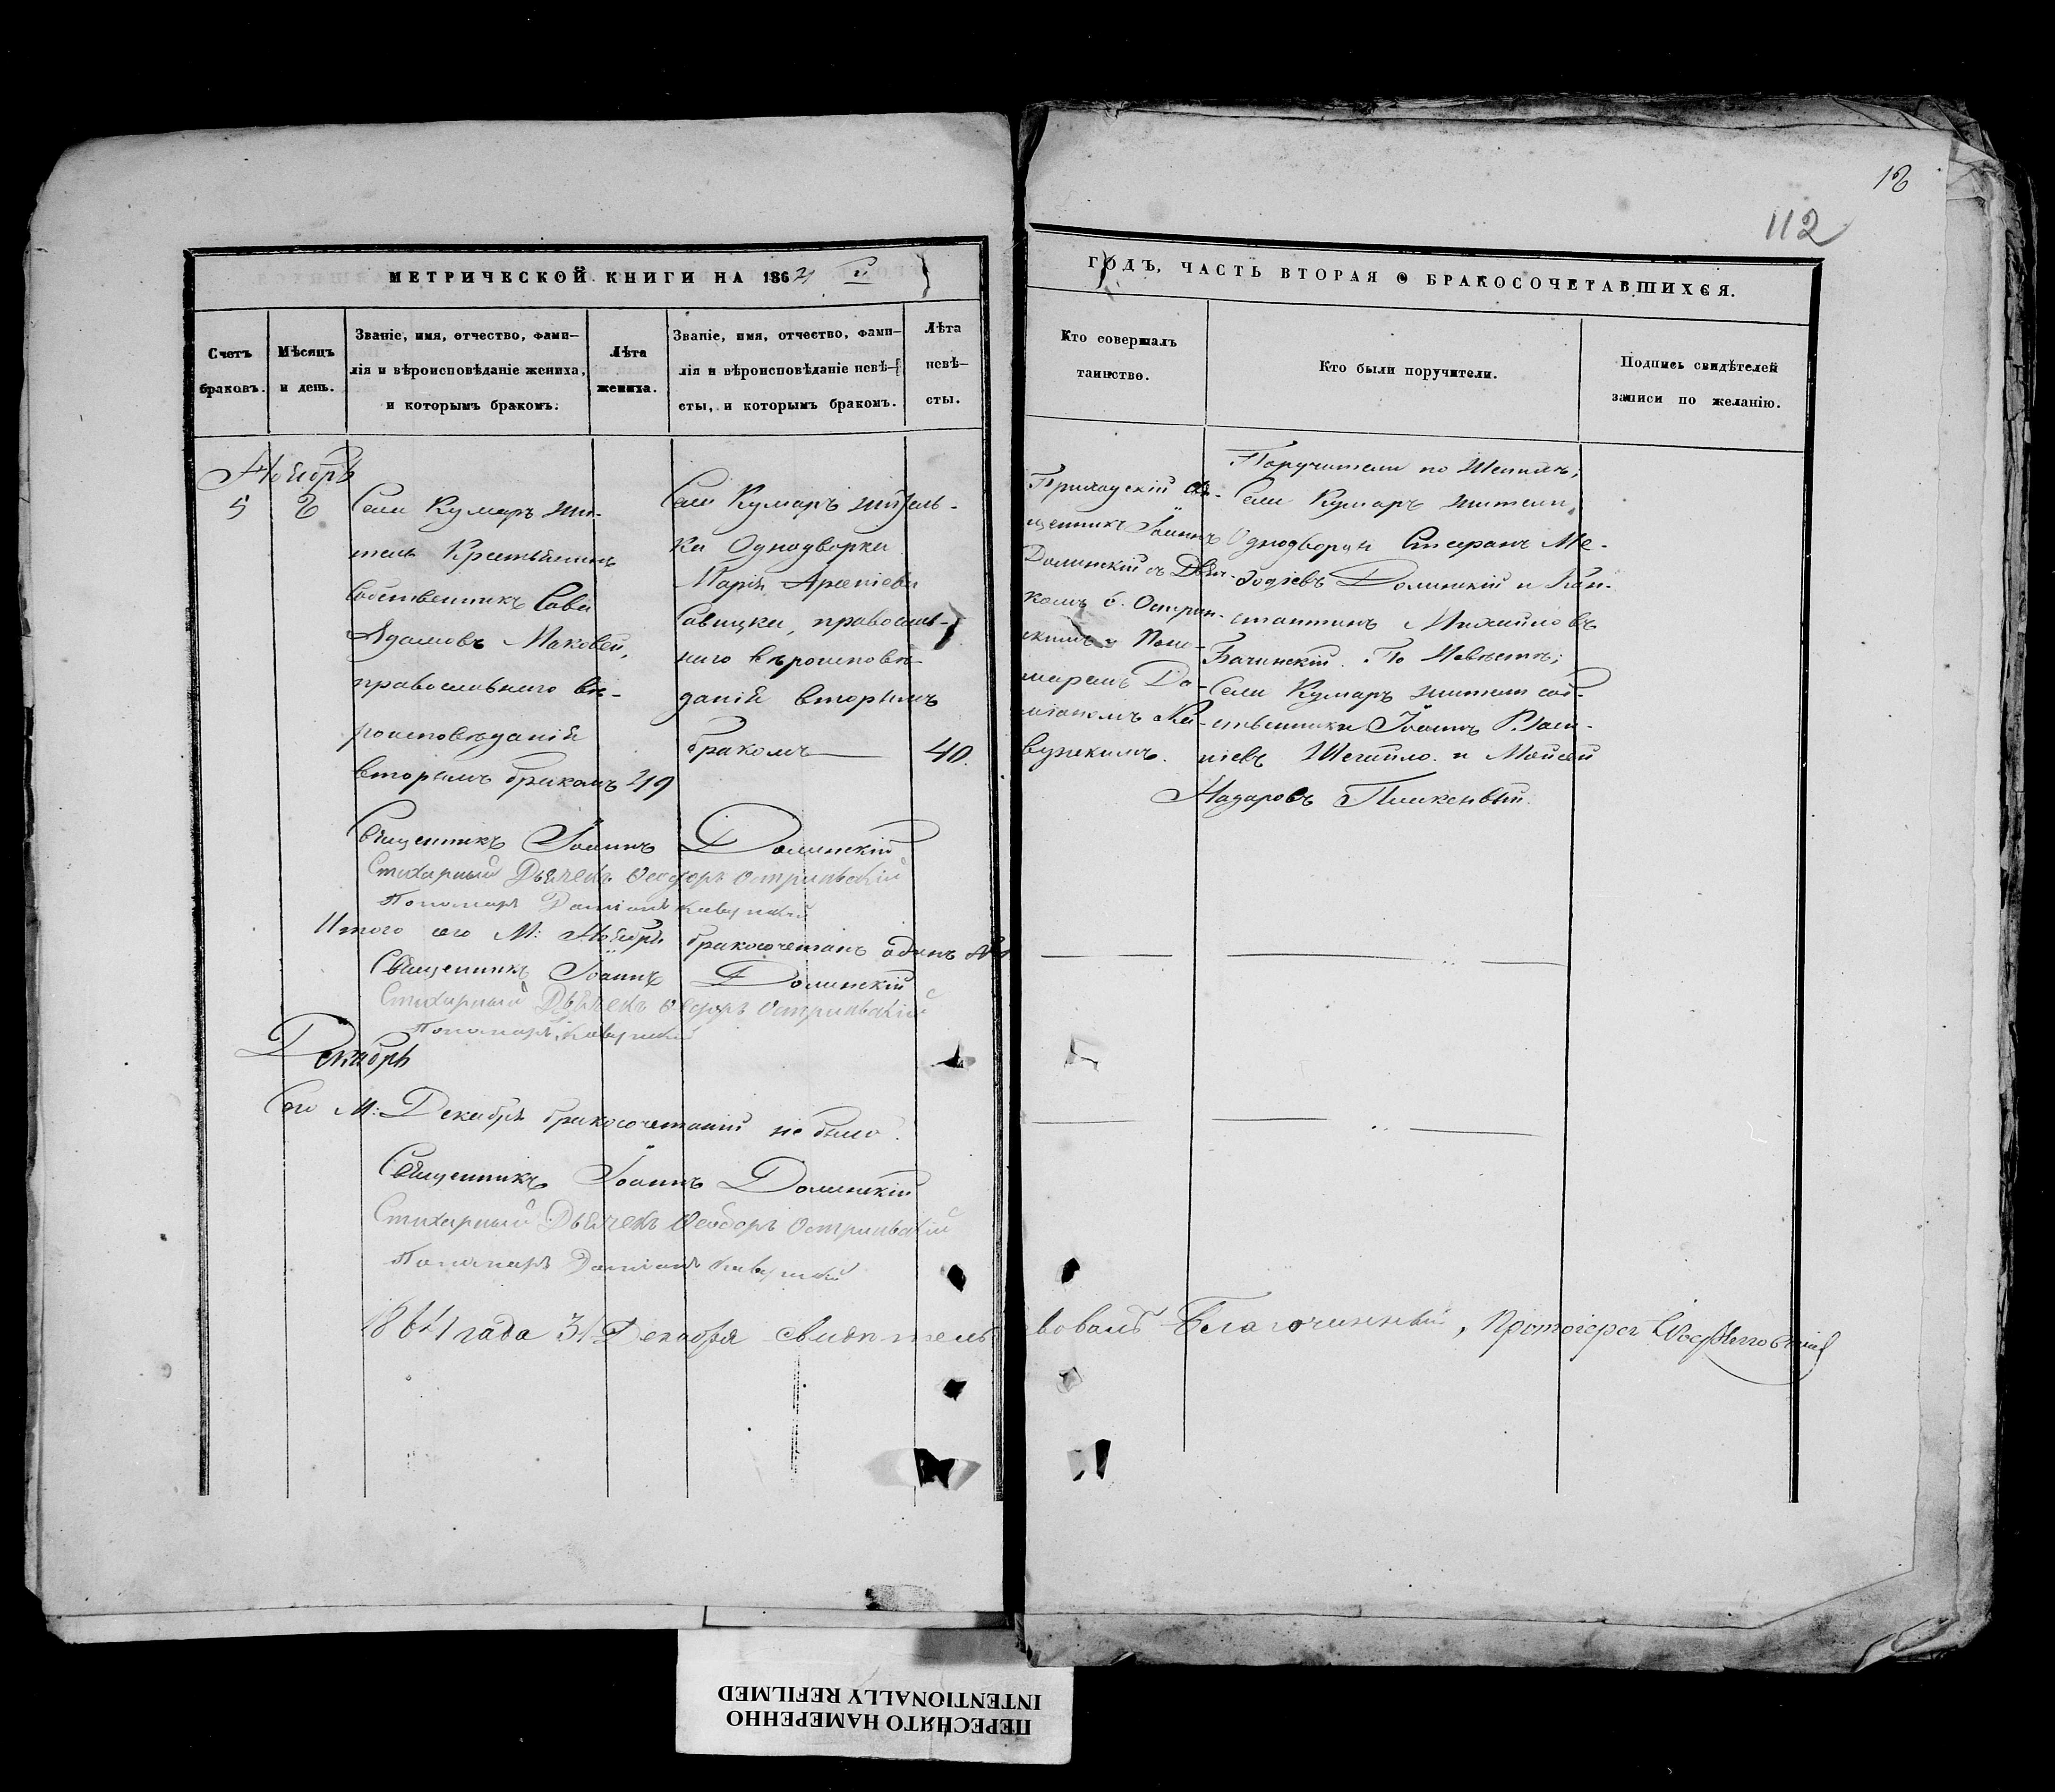 12
112
МЕТРИЧЕСКОЙ КНИГИ НА 1864
ГОДЪ, ЧАСТЬ ВТОРАЯ О БРАКОСОЧЕТАВШИХСЯ.
Счетъ
браковъ.
Мѣсяцъ
и день.
Званіе, имя, отчество, фами-
лія и вѣроисповѣданіе жениха,
и которымъ бракомъ.
Лѣта
жениха.
Званіе, имя, отчество, фами-
лія и вѣроисповѣданіе невѣ-
сты, и которымъ бракомъ.
Лѣта
невѣ-
сты.
Кто совершалъ
таинство.
Кто были поручители.
Подпись свидѣтелей
записи по желанію.
Ноябрь
5
Села Кумаръ жи-
тель Крестьянинъ
Собственникъ Сава
Адамовъ Маковей,
православнаго вѣ-
роисповѣданія
вторымъ бракомъ 49
Села Кумаръ житель-
ка Однодворка
Марія Арсеніева
Савицка, православ-
наго вѣроисповѣ-
данія вторымъ
бракомъ 40.
Приходскій Свя-
щенникъ Іоаннъ
Долинскій съ Дьяч-
комъ Ѳ. Острин-
скимъ и Поно-
маремъ Да-
міаномъ Ка-
вунскимъ.
Поручители по Женихѣ;
Села Кумаръ жители,
Однодворцы Стефанъ Ме-
фодіевъ Долинскій и Кон-
стантинъ Михайловъ
Бачинскій. По Невѣстѣ;
Села Кумаръ жители соб-
ственники Іоаннъ
Шегайло и Мойсей
Назаровъ
Священникъ Іоаннъ Долинскій
Стихарный Дьячекъ Ѳеодоръ
Пономарь Даміанъ Кавунскій
Итого сего М: Ноября бракосочетанъ одинъ №1
Священникъ Іоаннъ Долинскій
Стихарный Дьячекъ Ѳеодоръ
Пономарь Кавунскій
Декабрь
Сего М: Декабря бракосочетаній не было.
Священникъ Іоаннъ Долинскій
Стихарный Дьячекъ Ѳеодоръ
Пономарь Даміанъ Кавунскій
1864 года 31 Декабря свидѣтель
ствовалъ Благочинный, Протоіерей
ПЕРЕСНЯТО НАМЕРЕННО
INTENTIONALLY REFILMED